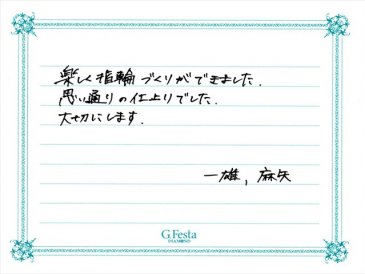 楽しく指輪づくりができました.
思い通りの仕上りでした.
大切にします.
一雄, 麻矢
G.Festa
DIAMOND